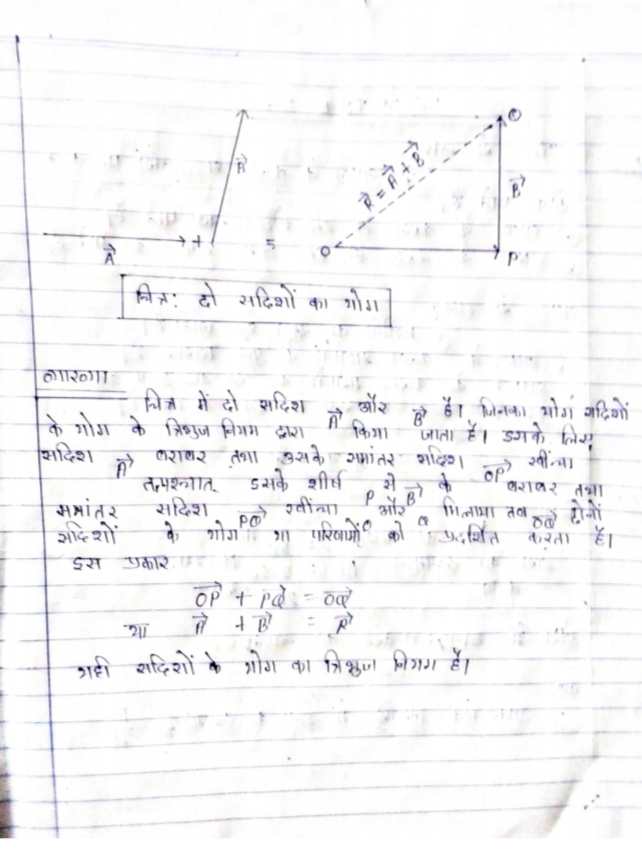 R⃗
R⃗ = A⃗ + B⃗
Q
B⃗
A⃗
+
=
O
P
चित्र: दो सदिशों का योग
व्याख्या
चित्र में दो सदिश A⃗ और B⃗ है। जिनका योग सदिशों
के योग के त्रिभुज नियम द्वारा किया जाता है। इसके लिए
सदिश A⃗ बराबर तथा उसके समांतर सदिश OP⃗ खींचा
तत्पश्चात् इसके शीर्ष P से B⃗ के बराबर तथा
समांतर सदिश PQ⃗ खींचा O और Q मिलाया तब OQ⃗ दोनों
सदिशों के योग या परिणामी को प्रदर्शित करता है।
इस प्रकार
OP⃗ + PQ⃗ = OQ⃗
या A⃗ + B⃗ = R⃗
यही सदिशों के योग का त्रिभुज नियम है।